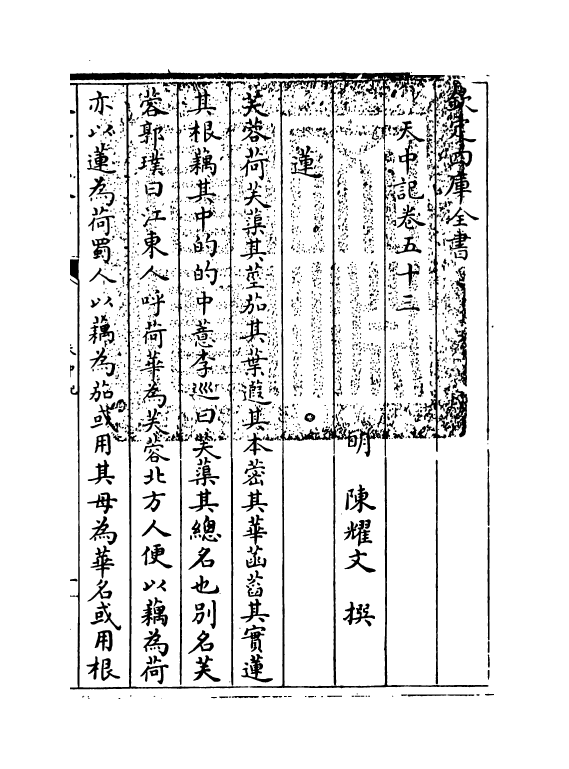 欽定四庫全書
天中記卷五十三
明 陳耀文 撰
蓮
芙蓉荷芙蕖其莖茄其葉蕸其本蔤其華菡萏其實蓮
其根藕其中的的中薏李巡曰芙蕖其總名也別名芙
蓉郭璞曰江東人呼荷華為芙蓉北方人便以藕為荷
亦以蓮為荷蜀人以藕為茄或用其母為華名或用根